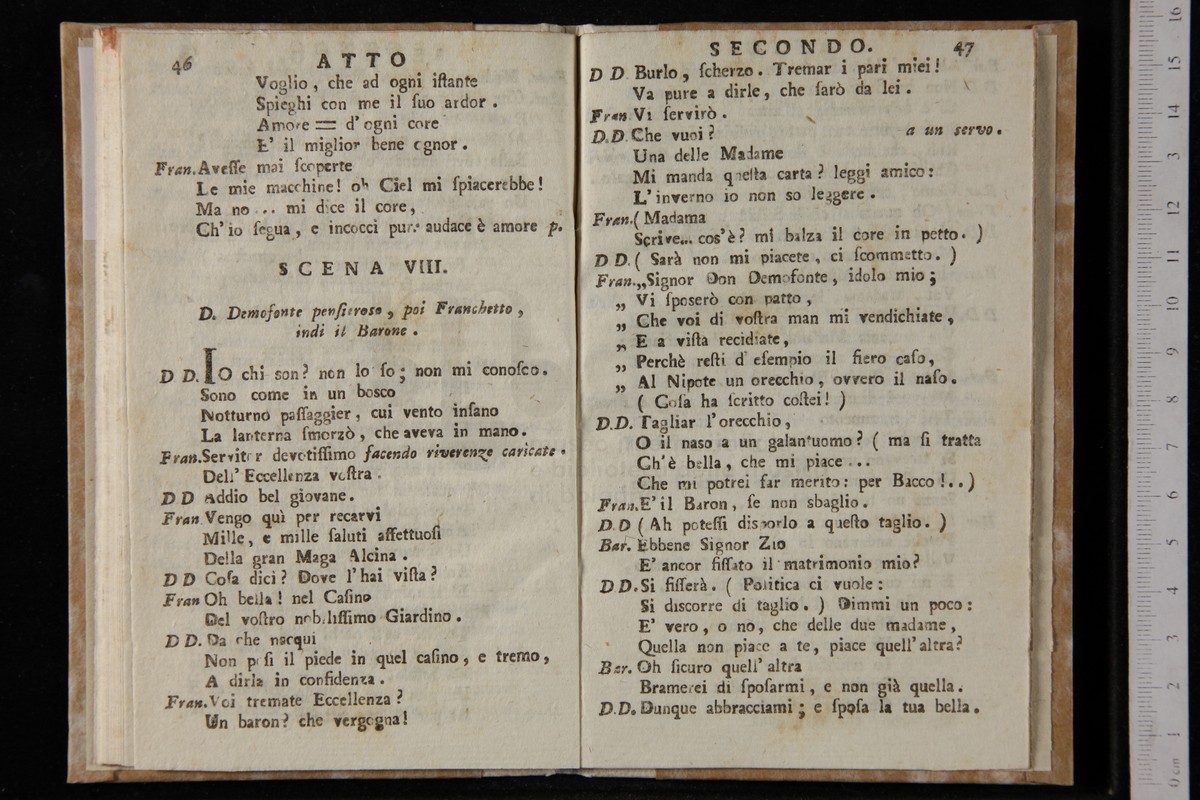 46
ATTO
Voglio, che ad ogni iſtante
Spieghi con me il ſuo ardor.
Amore = d'ogni core
E' il miglior bene ognor.
Fran. Aveſſe mai ſcoperte
Le mie macchine! oh Ciel mi ſpiacerebbe!
Ma no... mi dice il core,
Ch'io ſegua, e incocci pur: audace è amore p.
SCENA VIII.
D. Demofonte penſieroso, poi Franchetto,
indi il Barone.
D D. IO chi son? non lo ſo; non mi conoſco.
Sono come in un bosco
Notturno paſſaggier, cui vento inſano
La lanterna ſmorzò, che aveva in mano.
Fran. Servitor devotiſſimo facendo riverenze caricate.
Dell' Eccellenza voſtra.
D D Addio bel giovane.
Fran Vengo quì per recarvi
Mille, e mille ſaluti affettuoſi
Della gran Maga Alcina.
D D Coſa dici? Dove l'hai viſta?
Fran Oh bella! nel Caſino
Del voſtro nobiliſſimo Giardino.
D D. Da che nacqui
Non poſi il piede in quel caſino, e tremo,
A dirla in confidenza.
Fran. Voi tremate Eccellenza?
Un baron? che vergogna!
SECONDO.
47
D D. Burlo, ſcherzo. Tremar i pari miei!
Va pure a dirle, che ſarò da lei.
Fran. Vi ſervirò.
D.D. Che vuoi? a un servo.
Una delle Madame
Mi manda queſta carta? leggi amico:
L'inverno io non so leggere.
Fran. ( Madama
Scrive... cos'è? mi balza il core in petto. )
D D. ( Sarà non mi piacete, ci ſcommetto. )
Fran. „Signor Don Demofonte, idolo mio;
„ Vi ſposerò con patto,
„ Che voi di voſtra man mi vendichiate,
„ E a viſta recidiate,
„ Perchè reſti d'eſempio il fiero caſo,
„ Al Nipote un orecchio, ovvero il naſo.
( Coſa ha ſcritto coſtei! )
D.D. Tagliar l'orecchio,
O il naso a un galantuomo? ( ma ſi tratta
Ch'è bella, che mi piace...
Che mi potrei far merito: per Bacco!..)
Fran. E' il Baron, ſe non sbaglio.
D.D ( Ah poteſſi disporlo a queſto taglio. )
Bar. Ebbene Signor Zio
E' ancor fiſſato il matrimonio mio?
D D. Si fiſſerà. ( Politica ci vuole:
Si discorre di taglio. ) Dimmi un poco:
E' vero, o no, che delle due madame,
Quella non piace a te, piace quell'altra?
Bar. Oh ſicuro quell'altra
Bramerei di ſpoſarmi, e non già quella.
D.D. Dunque abbracciami; e ſpoſa la tua bella.